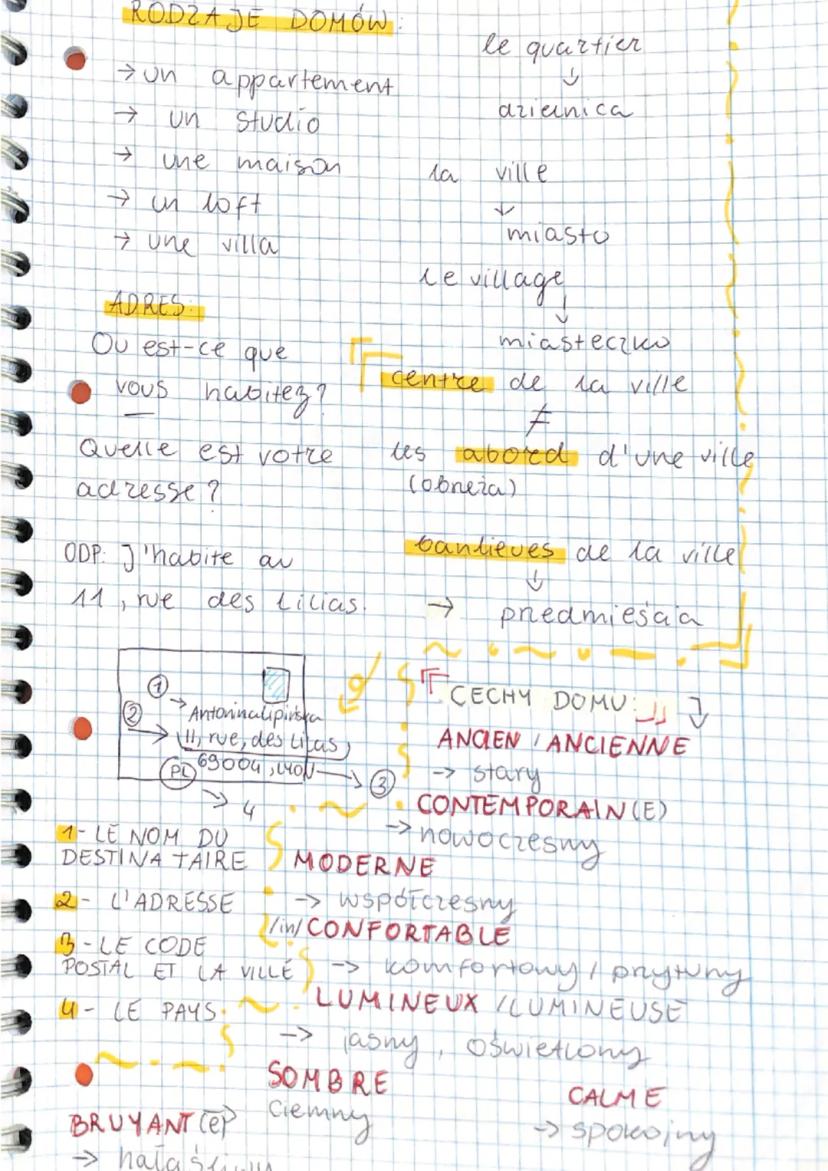 RODZAJE DOMÓW:
→ un appartement
→ un studio
→ une maison
→ un loft
→ une villa
le quartier
↓
dzielnica
la ville
↓
miasto
le village
↓
miasteczko
ADRES:
Ou est-ce que
vous habitez?
Quelle est votre
adresse?
ODP: J'habite au
11, rue des Lilias.
centre de la ville
≠
les abord d'une ville
(obrzeża)
banlieues de la ville
↓
→ przedmieścia
① →
Antonina Lipińska
② → 11, rue, des Lilas,
PL 69004, LYON → ③
→ 4
1- LE NOM DU
DESTINATAIRE
2- L'ADRESSE
3- LE CODE
POSTAL ET LA VILLE
4- LE PAYS
CECHY DOMU:
ANCIEN / ANCIENNE
→ stary
CONTEMPORAIN(E)
→ nowoczesny
MODERNE
→ współczesny
/in/CONFORTABLE
→ komfortowy / przytulny
LUMINEUX / LUMINEUSE
→ jasny, oświetlony
SOMBRE
ciemny
CALME
→ spokojny
BRUYANT(e)
→ hałaśliwy